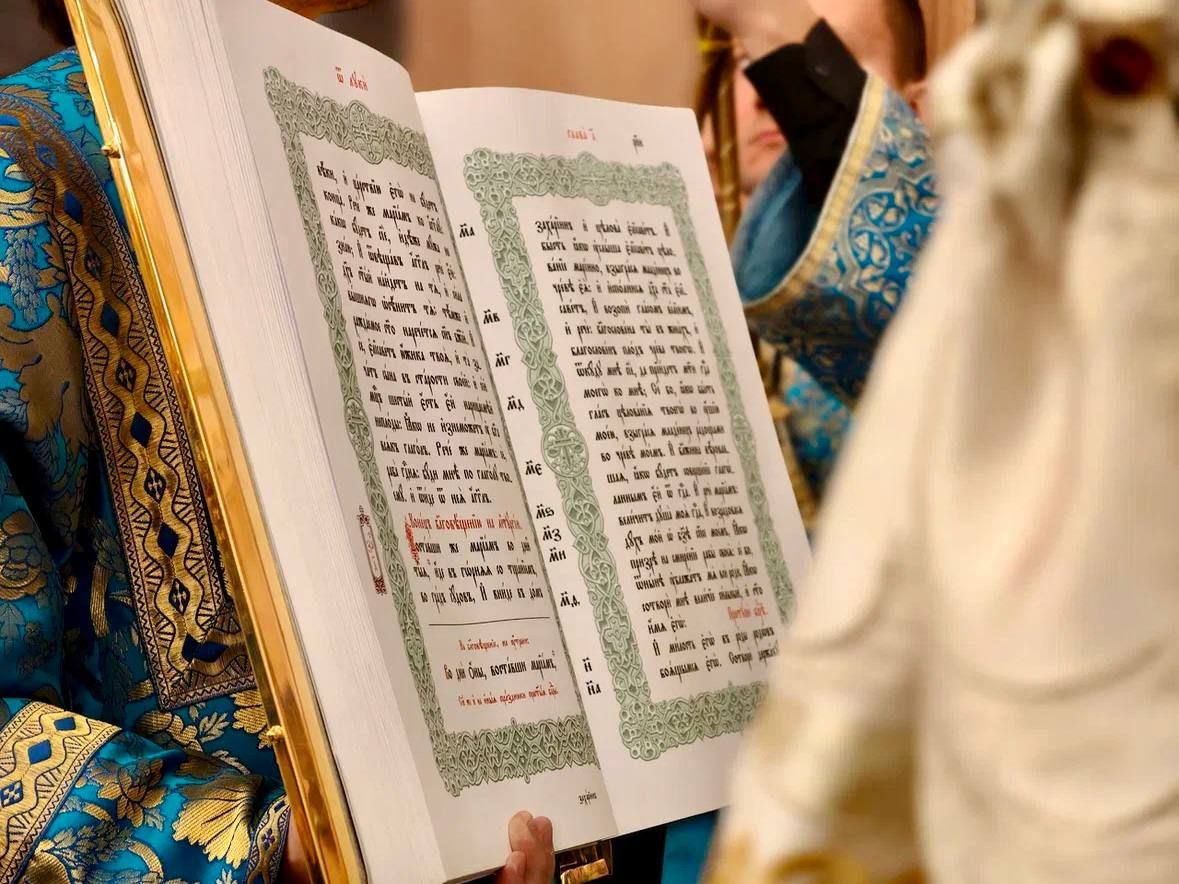 Ѿ лꙋкѝ
вѣ́ки, и҆ црⷭ҇твїю є҆гѡ̀ не бꙋ́детъ
конца̀. Рече́ же марїа́мъ ко а҆́гг҃лꙋ:
ка́кѡ бꙋ́детъ сїѐ, и҆дѣ́же мꙋ́жа не
зна́ю; И҆ ѿвѣща́въ а҆́гг҃лъ речѐ є҆́й:
дх҃ъ ст҃ы́й на́йдетъ на тѧ̀, и҆ си́ла
вы́шнѧгѡ ѡ҆сѣни́тъ тѧ̀: тѣ́мже
ражда́емое ст҃о нарече́тсѧ сн҃ъ бж҃їй. И҆
є҆лїсаве́тъ ю҆́жика твоѧ̀, и҆ та̀ за-
ча́тъ сы́на въ ста́рости свое́й: и҆ се́й
мц҃ъ шесты́й є҆́сть є҆́й нарица́емѣй
непло́ды: Ꙗ҆́кѡ не и҆знемо́жетъ ѿ бг҃а
всѧ́къ глаго́лъ. Рече́ же марїа́мъ: сѐ,
раба̀ гдⷭ҇нѧ: бꙋ́ди мнѣ̀ по глаго́лꙋ тво-
емꙋ̀. и҆ ѿи́де ѿ неѧ̀ а҆́гг҃лъ.
Коне́цъ бл҃говѣ́щенїю на лїтꙋргі́и.
Воста́вши же марїа́мъ во дни̑
ты̑ѧ, и҆́де въ гѡ́рнѧѧ со тща́нїемъ,
во гра́дъ і҆ꙋ́довъ, И҆ вни́де въ до́мъ
Въ бл҃говѣ́щенїе, на ᲂу҆́трени:
Во дни̑ ѻ҆́ны, воста́вши марїа́мъ,
Сїѐ же и҆ на и҆ны̑ѧ пра́здники прест҃ы́ѧ бц҃ы.
заха́рїинъ
глава̀ а҃
м҃а
м҃в
м҃г
м҃д
м҃є
м҃ѕ
м҃з
м҃и
м҃ѳ
н҃
н҃а
заха́рїинъ и҆ цѣлова̀ є҆лїсаве́ть. И҆
бы́сть ꙗ҆́кѡ ᲂу҆слы́ша є҆лїсаве́ть цѣло-
ва́нїе марі́ино, взыгра́сѧ младе́нецъ во
чре́вѣ є҆ѧ̀: и҆ и҆спо́лнисѧ дх҃а ст҃а є҆лї-
саве́ть, И҆ возопѝ гла́сомъ ве́лїимъ,
и҆ речѐ: блгⷭ҇ве́на ты̀ въ жена́хъ, и҆
благослове́нъ пло́дъ чре́ва твоегѡ̀. И҆
ѿкꙋ́дꙋ мнѣ̀ сїѐ, да прїи́детъ мт҃и гдⷭ҇а
моегѡ̀ ко мнѣ̀; Се́ бо, ꙗ҆́кѡ бы́сть
гла́съ цѣлова́нїѧ твоегѡ̀ во ᲂу҆́шїю
моє́ю, взыгра́сѧ младе́нецъ ра́дощами
во чре́вѣ мое́мъ. И҆ бл҃же́нна вѣ́рова-
вшаѧ, ꙗ҆́кѡ бꙋ́детъ соверше́нїе глаго́-
ланнымъ є҆́й ѿ гдⷭ҇а. И҆ речѐ марїа́мъ:
вели́читъ дꙋша̀ моѧ̀ гдⷭ҇а, И҆ возра́довасѧ
дꙋ́хъ мо́й ѡ҆ бз҃ѣ сп҃сѣ мое́мъ. Ꙗ҆́кѡ
призрѣ̀ на смире́нїе рабы̀ своеѧ̀: се́ бо,
ѿны́нѣ ᲂу҆блажа́тъ мѧ̀ всѝ ро́ди. Ꙗ҆́кѡ
сотворѝ мнѣ̀ вели́чїе си́льный, и҆ ст҃о
и҆́мѧ є҆гѡ̀:
И҆ ми́лость є҆гѡ̀ въ ро́ды родѡ́въ
боѧ́щымсѧ є҆гѡ̀. Сотворѝ держа́вꙋ